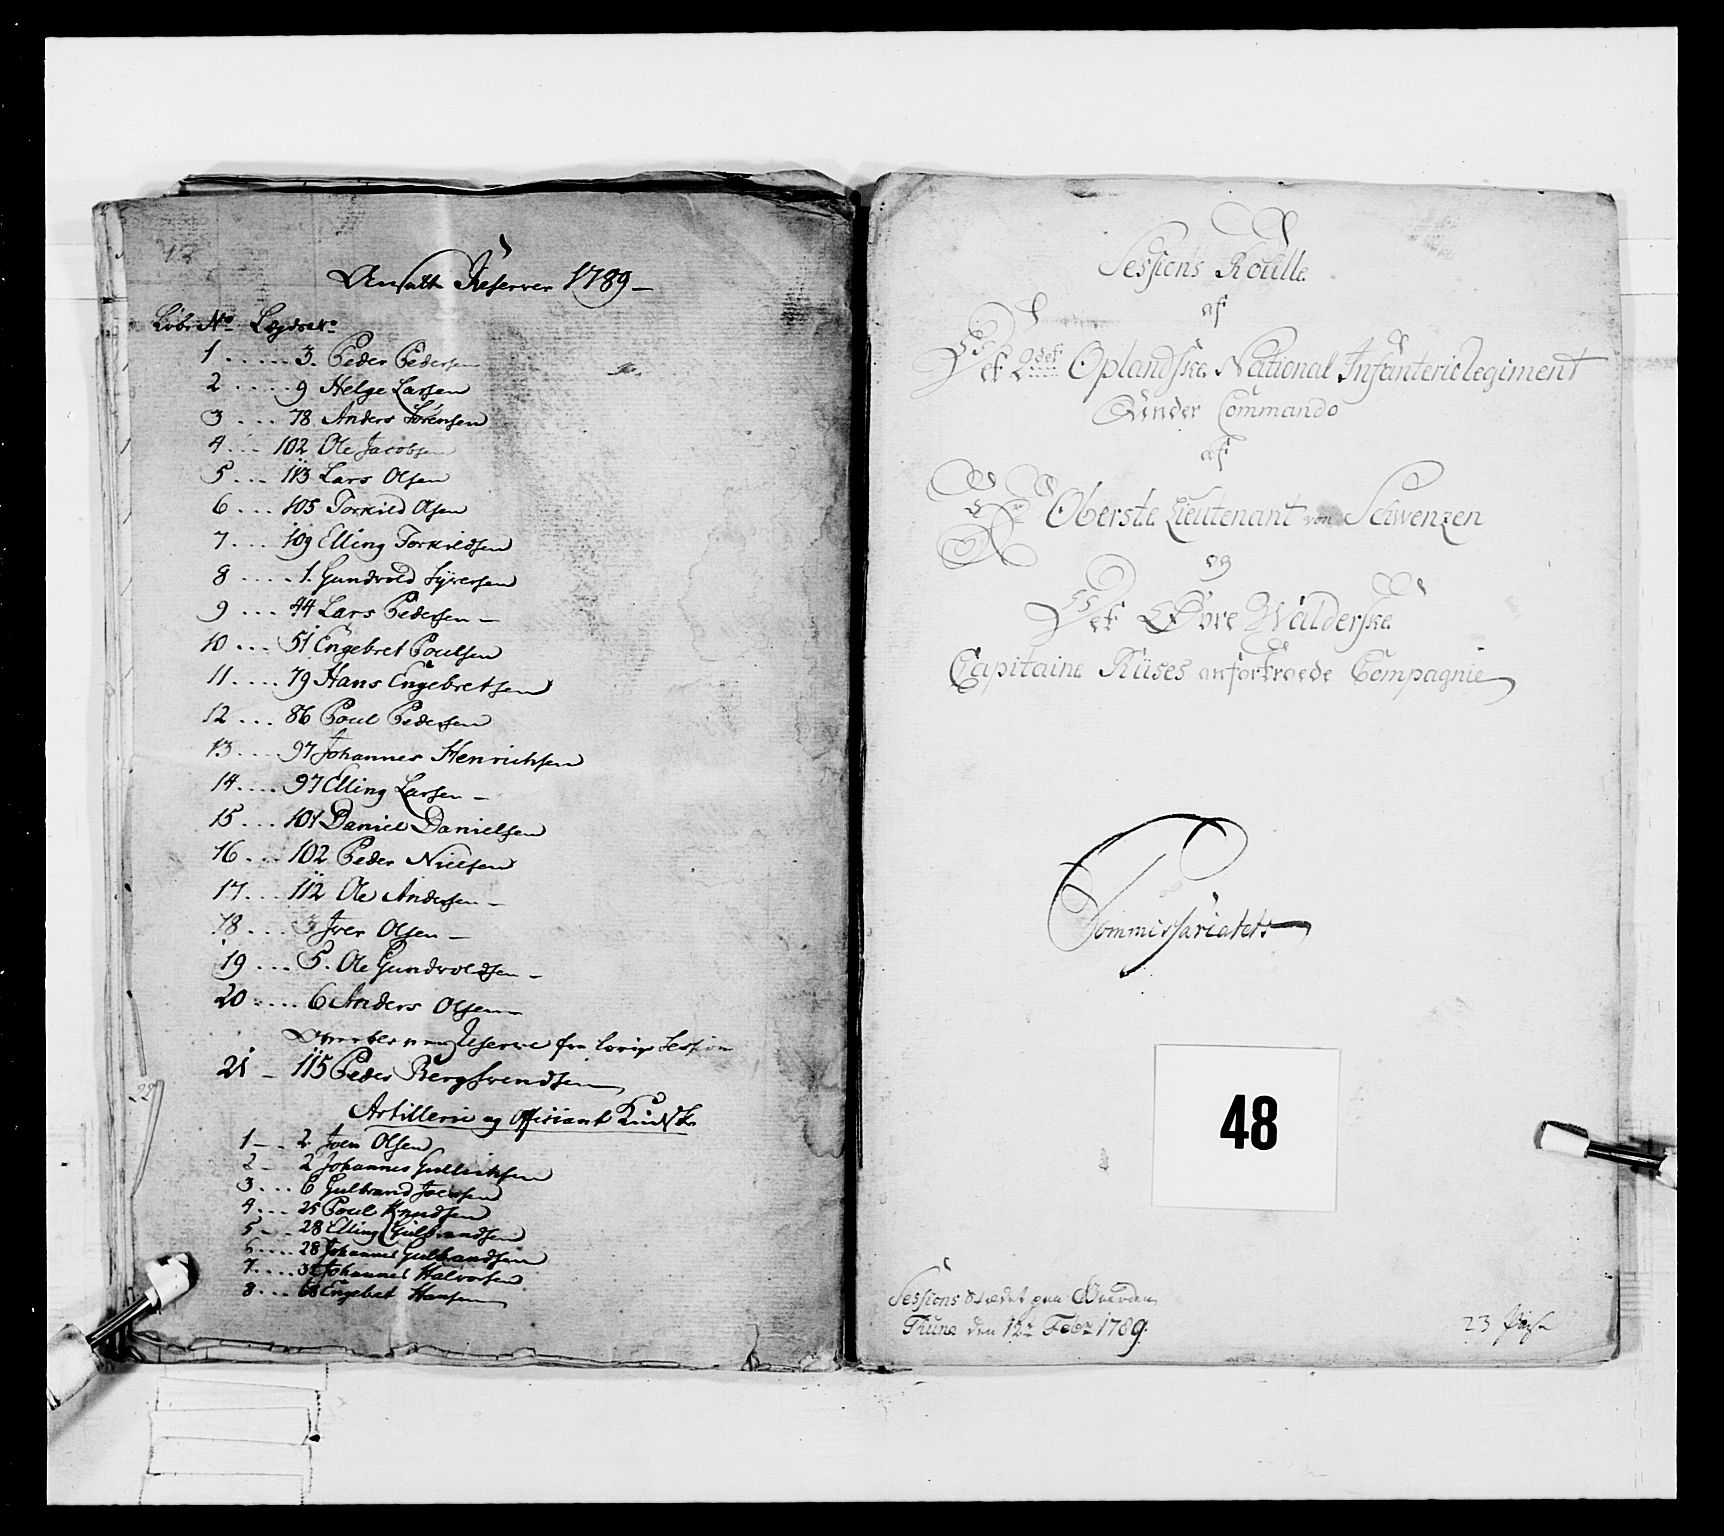 Ansatte Reserver 1789
Løbe No Lægds No
1 3. Peder Pedersen
2 9 Helge Larsen
3 78 Anders Sørensen
4 102 Ole Jacobsen
5 113 Lars Olsen
6 105 Torkild Olsen
7 109 Elling Torkildsen
8 1. Gundvold Syversen
9 44 Lars Pedersen
10 51 Engebret Poulsen
11 79 Hans Engebretsen
12 86 Poul Pedersen
13 97 Johannes Henrichsen
14 97 Elling Larsen
15 101 Daniel Danielsen
16 102 Peder Nielsen
17 112 Ole Andersen
18 3 Iver Olsen
19 5. Ole Gundvoldsen
20 6 Anders Olsen
Reserve fra forrige Session
21 115 Peder Bergsvendsen
Artillerie og Officiant
1 2. Iver Olsen
2 2 Johannes Gulliksen
3 6 Gulbrand Iversen
4 25 Poul Knudsen
5 28 Elling Gulbrandsen
6 28 Johannes Gulbrandsen
7 Johannes Halvorsen
8 68 Engebret Hansen
22
Sessions Roulle
af
Det 2det Oplandske National Infanterie Regiment
Under Commando
af
Hr Oberste Lieutenant von Schwenzen
og
Det Øvre Walderske
Capitaine Ruses anfortroede Compagnie
Commissariatets
48
Sessions Stædet paa Gaarden
Thune den 12te Febr 1789.
23